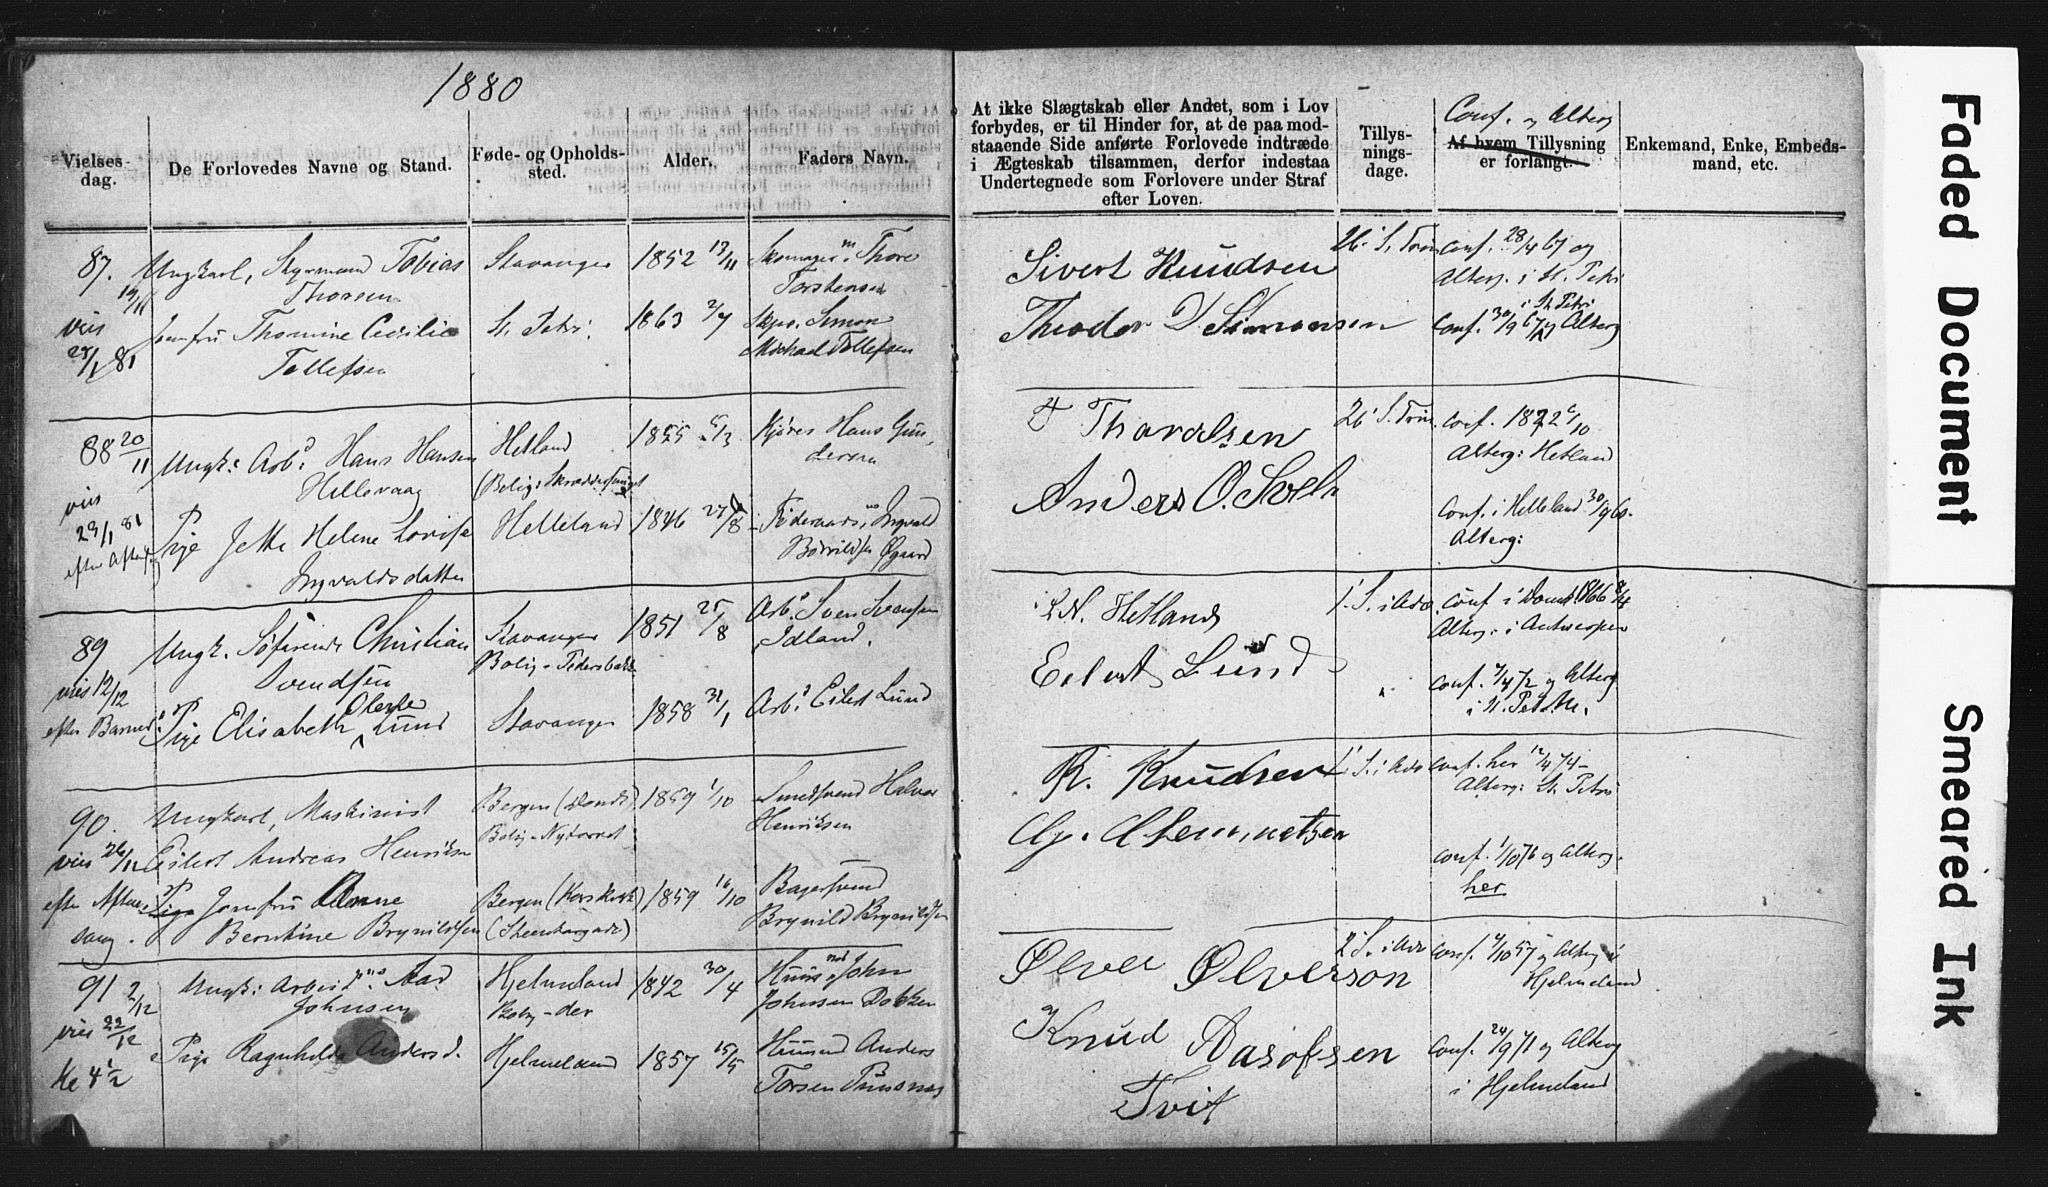 1880
Vielses-
dag.
De Forlovedes Navne og Stand.
Føde- og Opholds-
sted.
Alder.
Faders Navn.
87.
19/11
viet
28/1 81
Ungkarl, Styrmand Tobias
Thorsen
Jomfru Thomine Cecilie
Tollefsen
Stavanger
St. Petri
1852 13/11
1863 2/7
Skomager Thore
Torstensen
Skps. Simon
Michael Tollefsen
88 20/11
viet
23/1 81
efter Aftens
Ungk: Arb. Hans Hansen
Hellevaag
Pige Jette Helene Lovise
Ingvaldsdatter
Hetland
(Bolig:
Helleland
1855 5/3
1846 27/8
Kjører Hans Gun-
dersen
Ingvald
Øgaard
89
viet 12/12
efter Barned.
Ungk. Søfarende Christian
Svendsen
Pige Elisabeth Oleste Lund
Stavanger
Bolig - Pedersbakk
Stavanger
1851 25/8
1858 31/1
Arb. Sven Svensen
Idland.
Arb. Eilert Lund
90.
viet 26/12
efter Aften-
sang.
Ungkarl, Maskinist
Eilert Andreas Henriksen
Pige Jomfru Anne
Berntine Brynildsen
Bergen (Domk)
Bolig - Nytorvet
Bergen (Korskirk)
(Steenhargade)
1859 1/10
1859 16/10
Smedsvend Halvor
Henriksen
Bagersvend
Brynild Brynildsen
91 2/12
viet 22/12
Kl 4 1/2
Ungk: Arbeid Aad
Johnsen
Pige Ragnhilda Andersd.
Hjelmeland
Bolig - der
Hjelmeland
1842 30/4
1857 15/5
Huusmd John
Johnsen Dokken
Huusmd Anders
Torsen
At ikke Slægtskab eller Andet, som i Lov
forbydes, er til Hinder for, at de paa mod-
staaende Side anførte Forlovede indtræde
i Ægteskab tilsammen, derfor indestaa
Undertegnede som Forlovere under Straf
efter Loven.
Tillys-
nings-
dage.
Conf. og Alterg
Af hvem Tillysning
er forlangt.
Enkemand, Enke, Embeds-
mand, etc.
Sivert Knudsen
Theodor D Simonsen
26. S. Trin
Conf. 28/4 67 og
Alterg. i St. Petri
i St Petri
Conf. 30/9 67 og Alterg
T Thoralsen
Anders O. Svela
26 S. Trin.
Conf. 1822 6/10
Alterg: Hetland
Conf. i Helleland 30/9 60.
Alterg:
L N. Hetland
Eilert Lund
1. S. i Adv.
Conf i Domk 1866 8/4
Alterg: i Antwerpen
Conf. 7/4 72 og Alterg
i St. Petri M.
R. Knudsen
Og. A Clemmetsen
1 S. i Adv
Conf. her 12/4 74 -
Alterg: St. Petri
Conf. 1/10 76 og Alterg.
her
Ølver Ølverson
Knud Aasofsen
Tvit
2 S. i Adv
Conf. 4/10 57 og Alterg i
Hjelmeland
Conf. 24/9 71 og Alterg
i Hjelmeland
Faded Document
Smeared Ink